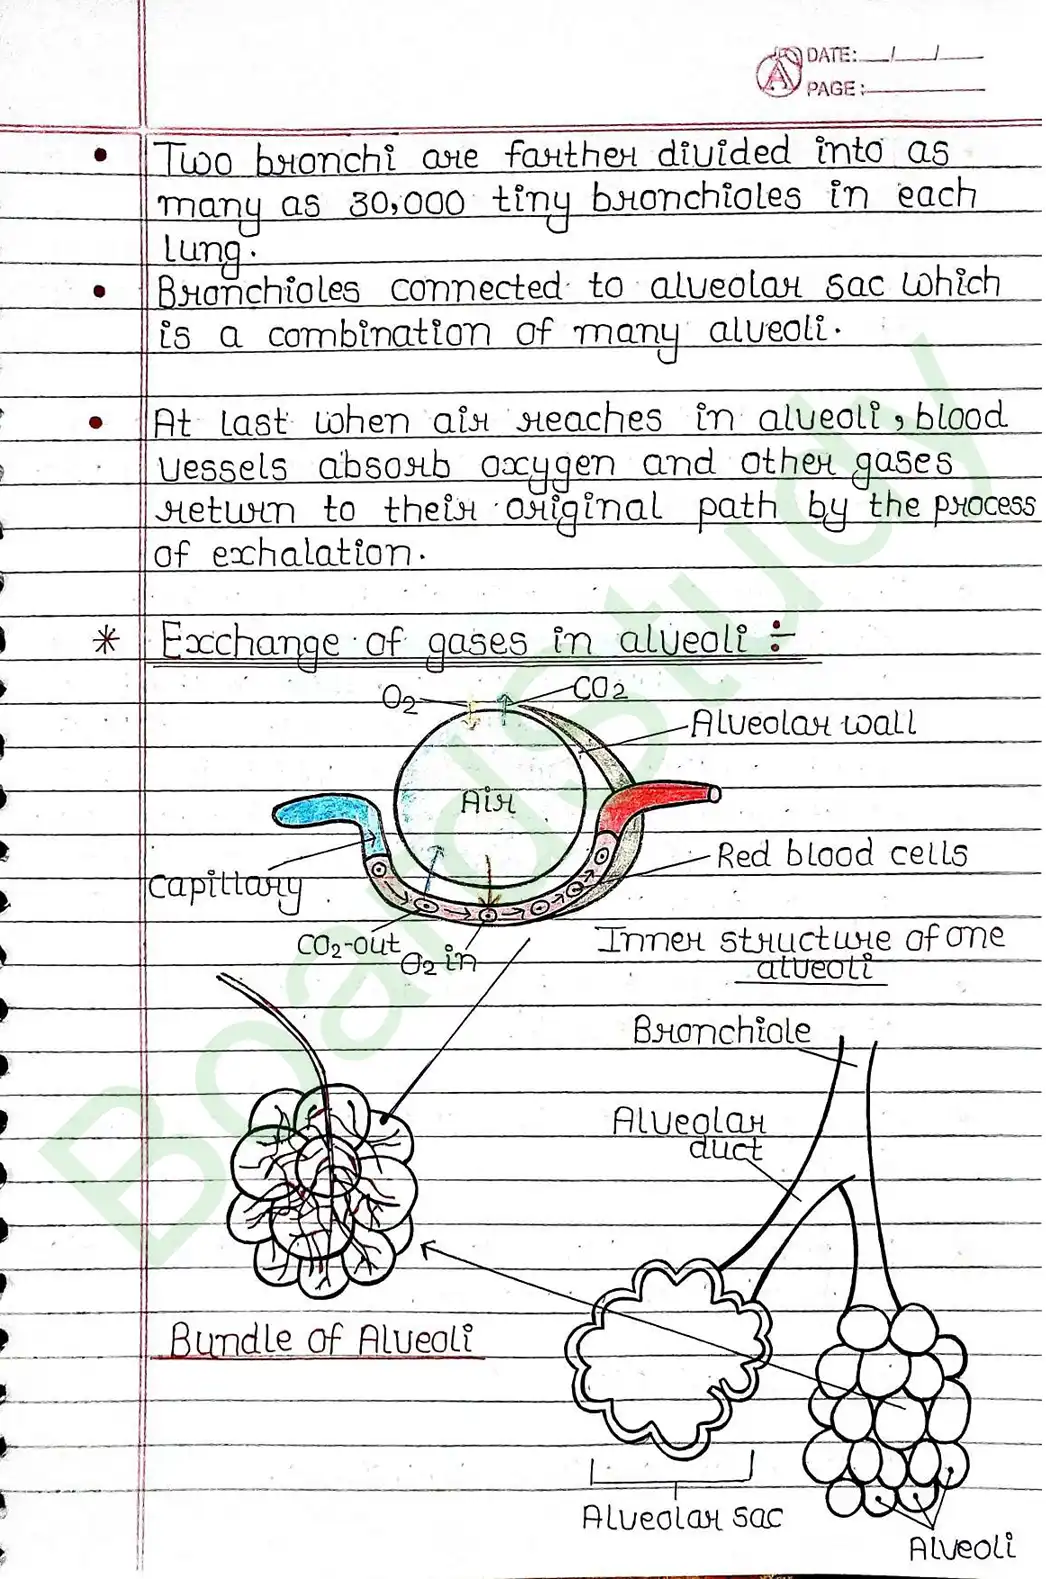 DATE: __/__/__
PAGE:
• Two bronchi are farther divided into as
many as 30,000 tiny bronchioles in each
lung.
• Bronchioles connected to alveolar sac which
is a combination of many alveoli.
• At last when air reaches in alveoli, blood
vessels absorb oxygen and other gases
return to their original path by the process
of exhalation.
* Exchange of gases in alveoli :-
O2 CO2
Alveolar wall
Air
Red blood cells
Capillary
CO2-out O2 in
Inner structure of one
alveoli
Bronchiole
Alveolar
duct
Bundle of Alveoli
Alveolar sac
Alveoli
Boardstudy